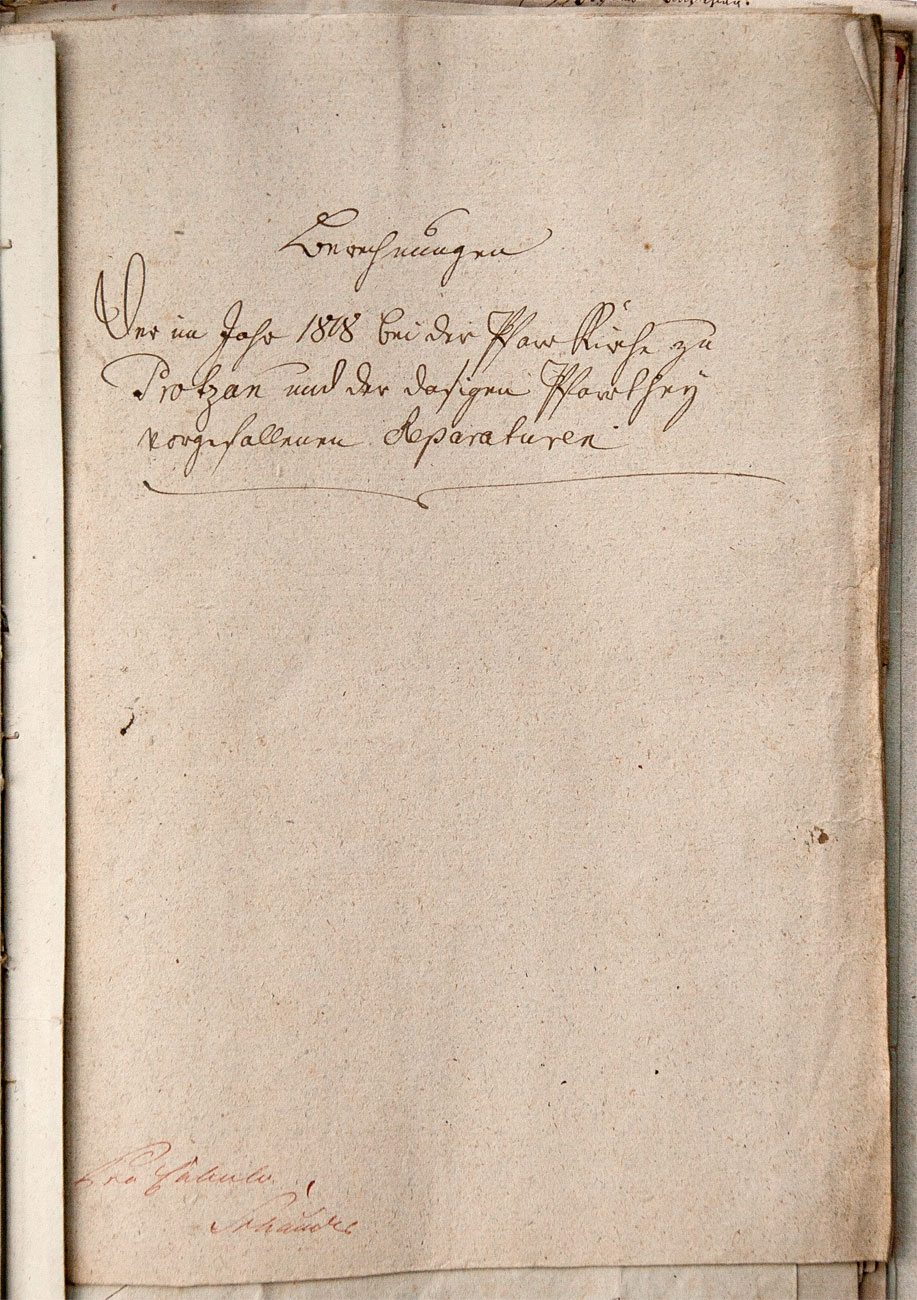 Berechnungen
Der im Jahr 1818 bei der Pfarr Kirche zu
Protzan und der dasigen Pfarrthey
vorgefallenen Reparaturen